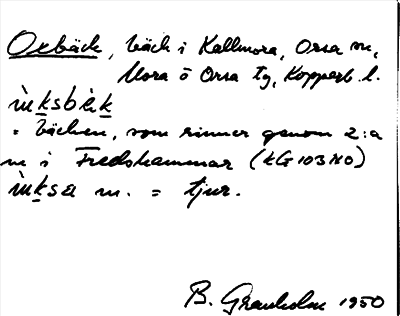 Oxbäck, bäck i Kallmora, Orsa sn,
Mora o Orsa tg, Kopparb. l.
ùksbèk
= bäcken, som rinner genom 2:a
n i Fredshammar (EG 103 NO)
ùksa m. = tjur.
B. Granholm 1950